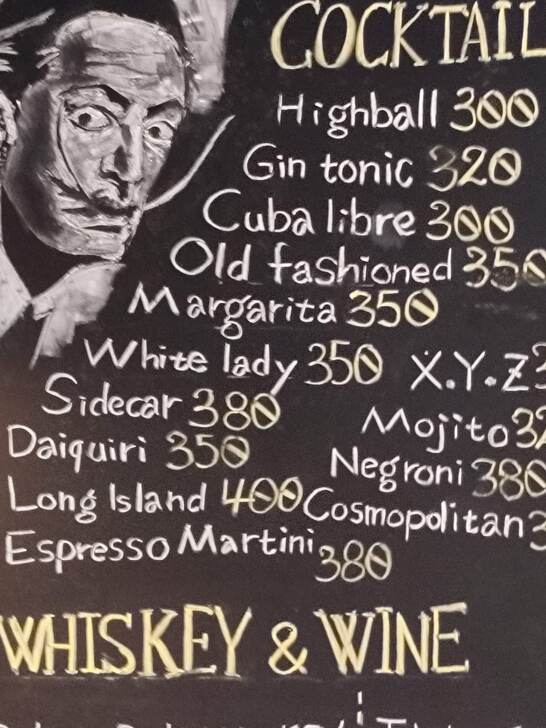 COCKTAIL
Highball 300
Gin tonic 320
Cuba libre 300
Old fashioned 350
Margarita 350
White lady 350 X.Y.Z
Sidecar 380
Mojito
Daiquiri 350
Negroni 380
Long Island 400
Cosmopolitan
Espresso Martini 380
WHISKEY & WINE